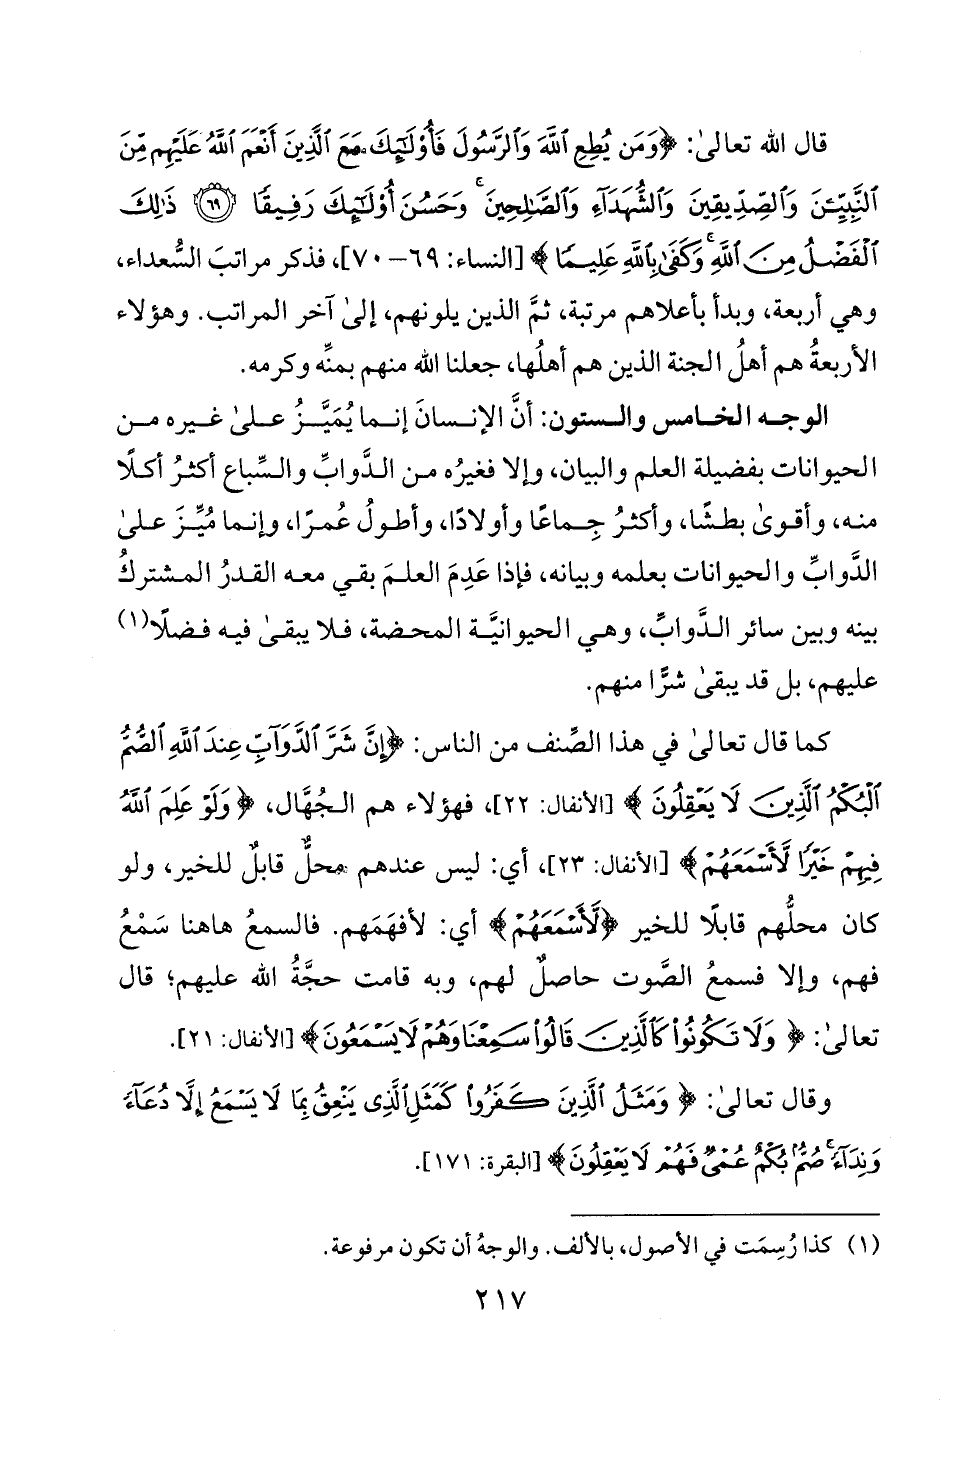 قال الله تعالىٰ: ﴿وَمَن يُطِعِ ٱللَّهَ وَٱلرَّسُولَ فَأُوْلَٰٓئِكَ مَعَ ٱلَّذِينَ أَنْعَمَ ٱللَّهُ عَلَيْهِم مِّنَ
ٱلنَّبِيِّـۧنَ وَٱلصِّدِّيقِينَ وَٱلشُّهَدَآءِ وَٱلصَّٰلِحِينَ ۚ وَحَسُنَ أُوْلَٰٓئِكَ رَفِيقًا ۝٦٩ ذَٰلِكَ
ٱلْفَضْلُ مِنَ ٱللَّهِ ۚ وَكَفَىٰ بِٱللَّهِ عَلِيمًا﴾ [النساء: ٦٩ – ٧٠]، فذكر مراتبَ السُّعداء،
وهي أربعة، وبدأ بأعلاهم مرتبة، ثمَّ الذين يلونهم، إلىٰ آخر المراتب. وهؤلاء
الأربعةُ هم أهلُ الجنة الذين هم أهلُها، جعلنا الله منهم بمنِّه وكرمه.
الوجه الخامس والستون: أنَّ الإنسانَ إنما يُمَيَّزُ علىٰ غيره من
الحيوانات بفضيلة العلم والبيان، وإلا فغيرُه من الدَّوابِّ والسِّباع أكثرُ أكلًا
منه، وأقوىٰ بطشًا، وأكثرُ جِماعًا وأولادًا، وأطولُ عُمرًا، وإنما مُيِّزَ علىٰ
الدَّوابِّ والحيوانات بعلمه وبيانه، فإذا عَدِمَ العلمَ بقي معه القدرُ المشتركُ
بينه وبين سائر الدَّوابِّ، وهي الحيوانيَّة المحضة، فلا يبقىٰ فيه فضلًا(١)
عليهم، بل قد يبقىٰ شرًّا منهم.
كما قال تعالىٰ في هذا الصِّنف من الناس: ﴿إِنَّ شَرَّ ٱلدَّوَآبِّ عِندَ ٱللَّهِ ٱلصُّمُّ
ٱلْبُكْمُ ٱلَّذِينَ لَا يَعْقِلُونَ﴾ [الأنفال: ٢٢]، فهؤلاء هم الجُهَّال، ﴿وَلَوْ عَلِمَ ٱللَّهُ
فِيهِمْ خَيْرًا لَّأَسْمَعَهُمْ﴾ [الأنفال: ٢٣]، أي: ليس عندهم محلٌّ قابلٌ للخير، ولو
كان محلُّهم قابلًا للخير ﴿لَّأَسْمَعَهُمْ﴾ أي: لأفهَمَهم. فالسمعُ هاهنا سَمْعُ
فهم، وإلا فسمعُ الصَّوت حاصلٌ لهم، وبه قامت حجَّةُ الله عليهم؛ قال
تعالىٰ: ﴿وَلَا تَكُونُوا۟ كَٱلَّذِينَ قَالُوا۟ سَمِعْنَا وَهُمْ لَا يَسْمَعُونَ﴾ [الأنفال: ٢١].
وقال تعالىٰ: ﴿وَمَثَلُ ٱلَّذِينَ كَفَرُوا۟ كَمَثَلِ ٱلَّذِى يَنْعِقُ بِمَا لَا يَسْمَعُ إِلَّا دُعَآءً
وَنِدَآءً ۚ صُمٌّۢ بُكْمٌ عُمْىٌ فَهُمْ لَا يَعْقِلُونَ﴾ [البقرة: ١٧١].
(١) كذا رُسِمَت في الأصول، بالألف. والوجهُ أن تكون مرفوعة.
٢١٧